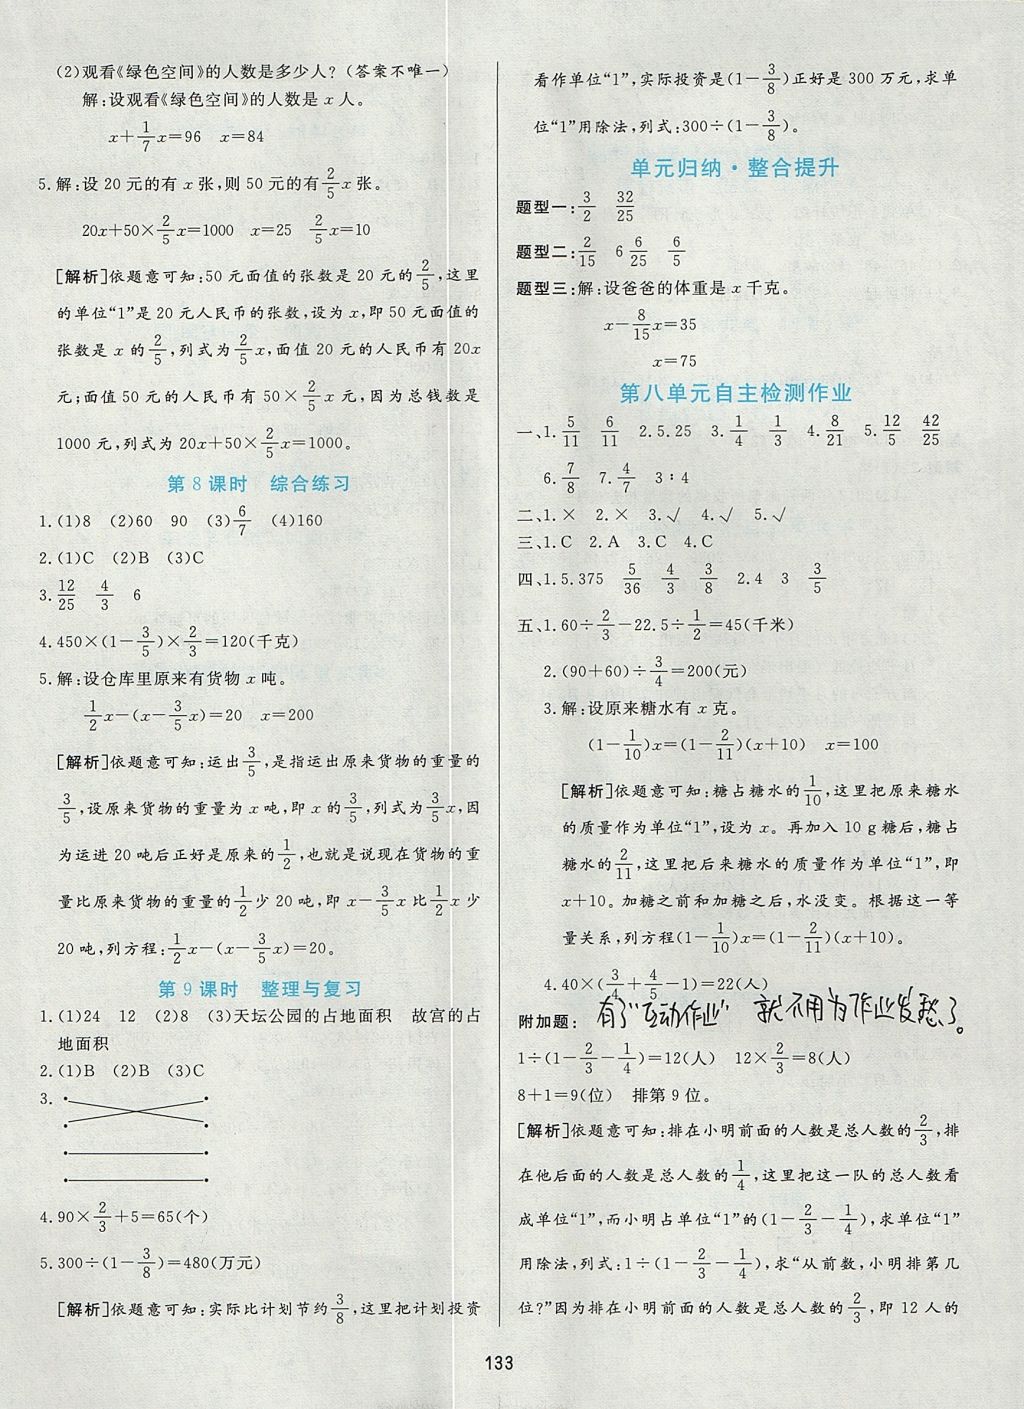 (2)观看《绿色空间》的人数是多少人?(答案不唯一)
解:设观看《绿色空间》的人数是 x 人。
x+1/7x=96 x=84
5.解:设 20 元的有 x 张,则 50 元的有2/5x 张。
20x+50×2/5x=1000 x=25 2/5x=10
[解析]依题意可知:50 元面值的张数是 20 元的2/5,这里
的单位“1”是 20 元人民币的张数,设为 x,即 50 元面值的
张数是 x 的2/5,列式为2/5x,面值 20 元的人民币有 20x
元;面值 50 元的人民币有 50×2/5x 元,因为总钱数是
1000 元,列式为 20x+50×2/5x=1000。
第 8 课时 综合练习
1.(1)8 (2)60 90 (3)6/7 (4)160
2.(1)C (2)B (3)C
3.12/25 4/3 6
4.450×(1-3/5)×2/3=120(千克)
5.解:设仓库里原来有货物 x 吨。
1/2x-(x-3/5x)=20 x=200
[解析]依题意可知:运出3/5,是指运出原来货物的重量的
3/5,设原来货物的重量为 x 吨,即 x 的3/5,列式为3/5x,因
为运进 20 吨后正好是原来的1/2,也就是说现在货物的重
量比原来货物的重量的1/2少 20 吨,即 x-3/5x 比1/2x 少
20 吨,列方程:1/2x-(x-3/5x)=20。
第 9 课时 整理与复习
1.(1)24 12 (2)8 (3)天坛公园的占地面积 故宫的占
地面积
2.(1)B (2)B (3)C
3.
4.90×2/3+5=65(个)
5.300÷(1-3/8)=480(万元)
[解析]依题意可知:实际比计划节约3/8,这里把计划投资
看作单位“1”,实际投资是(1-3/8)正好是 300 万元,求单
位“1”用除法,列式:300÷(1-3/8)。
单元归纳·整合提升
题型一:3/2 32/25
题型二:2/15 6 6/25 6/5
题型三:解:设爸爸的体重是 x 千克。
x-8/15x=35
x=75
第八单元自主检测作业
一、1.5/11 6/11 2.5.25 3.1/4 1/3 4.8/21 5.12/5 42/25
6.7/8 7.4/7 3∶4
二、1.× 2.× 3.√ 4.√ 5.√
三、1.C 2.A 3.C 4.C
四、1.5.375 5/36 4/3 3/8 2.4 3 3/5
五、1.60÷2/3-22.5÷1/2=45(千米)
2.(90+60)÷3/4=200(元)
3.解:设原来糖水有 x 克。
(1-1/10)x=(1-2/11)(x+10) x=100
[解析]依题意可知:糖占糖水的1/10,这里把原来糖水
的质量作为单位“1”,设为 x。再加入 10 g 糖后,糖占
糖水的2/11,这里把后来糖水的质量作为单位“1”,即
x+10。加糖之前和加糖之后,水没变。根据这一等
量关系,列方程(1-1/10)x=(1-2/11)(x+10)。
4.40×(3/4+4/5-1)=22(人)
附加题: 有了“互动作业” 就不用为作业发愁了。
1÷(1-2/3-1/4)=12(人) 12×2/3=8(人)
8+1=9(位) 排第 9 位。
[解析]依题意可知:排在小明前面的人数是总人数的2/3,排
在他后面的人数是总人数的1/4,这里把这一队的总人数看
成单位“1”,而小明占单位“1”的(1-2/3-1/4),求单位“1”
用除法,列式:1÷(1-2/3-1/4),求“从前数,小明排第几
位?”因为排在小明前面的人数是总人数的2/3,即 12 人的
133